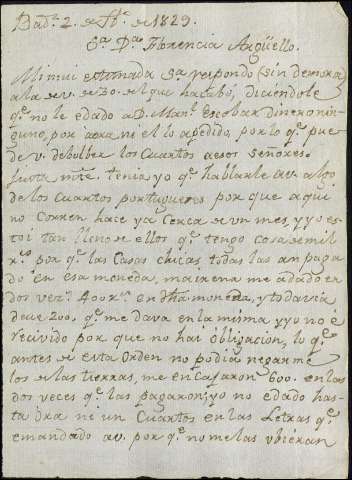 Bad.z 2. de Fb.o de 1829.
S.a D.a Florencia Argüello.
Mi mui estimada S.a respondo (sin demora)
a la de v. de 30. del que hacabó, diciendole
q.e no le e dado a D. Man.l Escobar dinero nin
guno, por aora ni el lo a pedido, por lo q.e pue
de v. debulber los Cuartos a esos Señores.
Justa m.te tenia yo q.e hablarle a v. algo
de los Cuartos portugueses por que aqui
no Corren hace ya Cerca de un mes, y yo es
toi tan lleno de ellos q.e tengo cosa de mil
r.s por q.e las Casas chicas todas las an paga
do en esa moneda, mairena me a dado en
dos vez.s 400 r.s en dha moneda, y todavia
deve 200, q.e me dava en la misma y yo no e
recivido por que no hai obligacion, lo q.e
antes de esta Orden no podia negarme
los de las tierras, me encajaron 600. en las
dos veces q.e las pagaron; yo no e dado has
ta Ora ni un Cuartos en las Letras q.e
e mandado a v. por q.e no me las ubieran